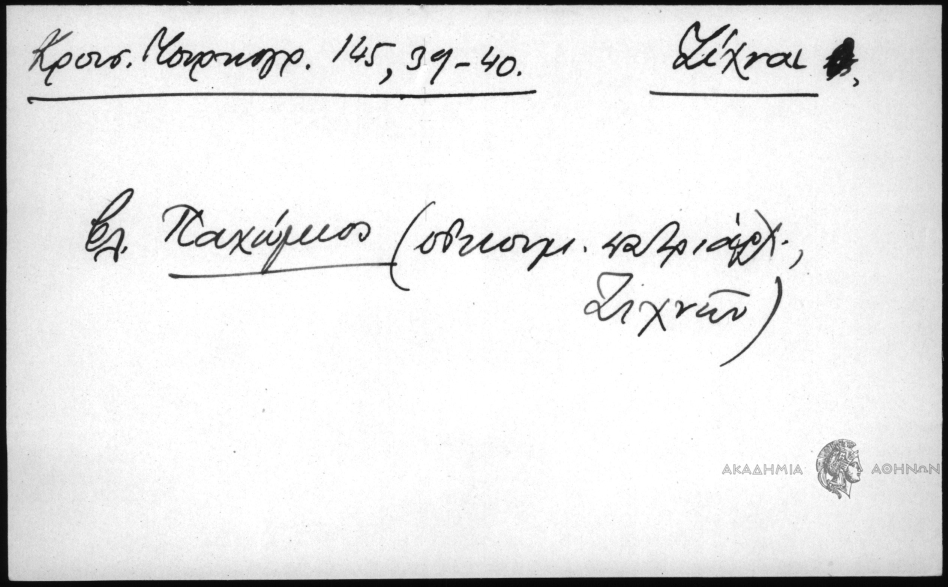 Κρουσ. Μοιρπογρ. 145, 39-40. Ζίχναι
βλ. Παχώμιος (οἰκουμ. πατριάρχ.,
Ζιχνῶν)
ΑΚΑΔΗΜΙΑ ΑΘΗΝΩΝ